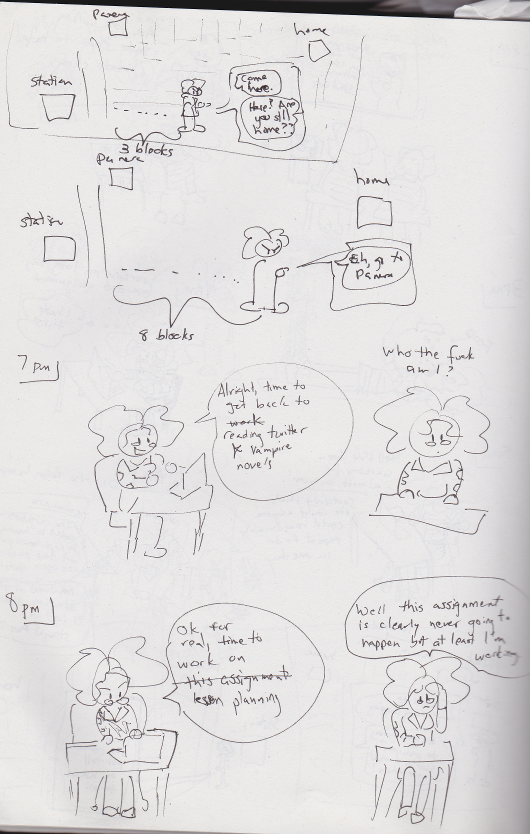 Panera
home
station
Come
here.
Here? Are
you still
home??
3 blocks
Panera
home
station
Eh, go to
Panera
8 blocks
7 pm
Alright, time to
get back to
work
reading twitter
& vampire
novels
Who the fuck
am I?
8 pm
Ok for
real, time to
work on
this assignment
lesson planning
Well this assignment
is clearly never going to
happen but at least I'm
working